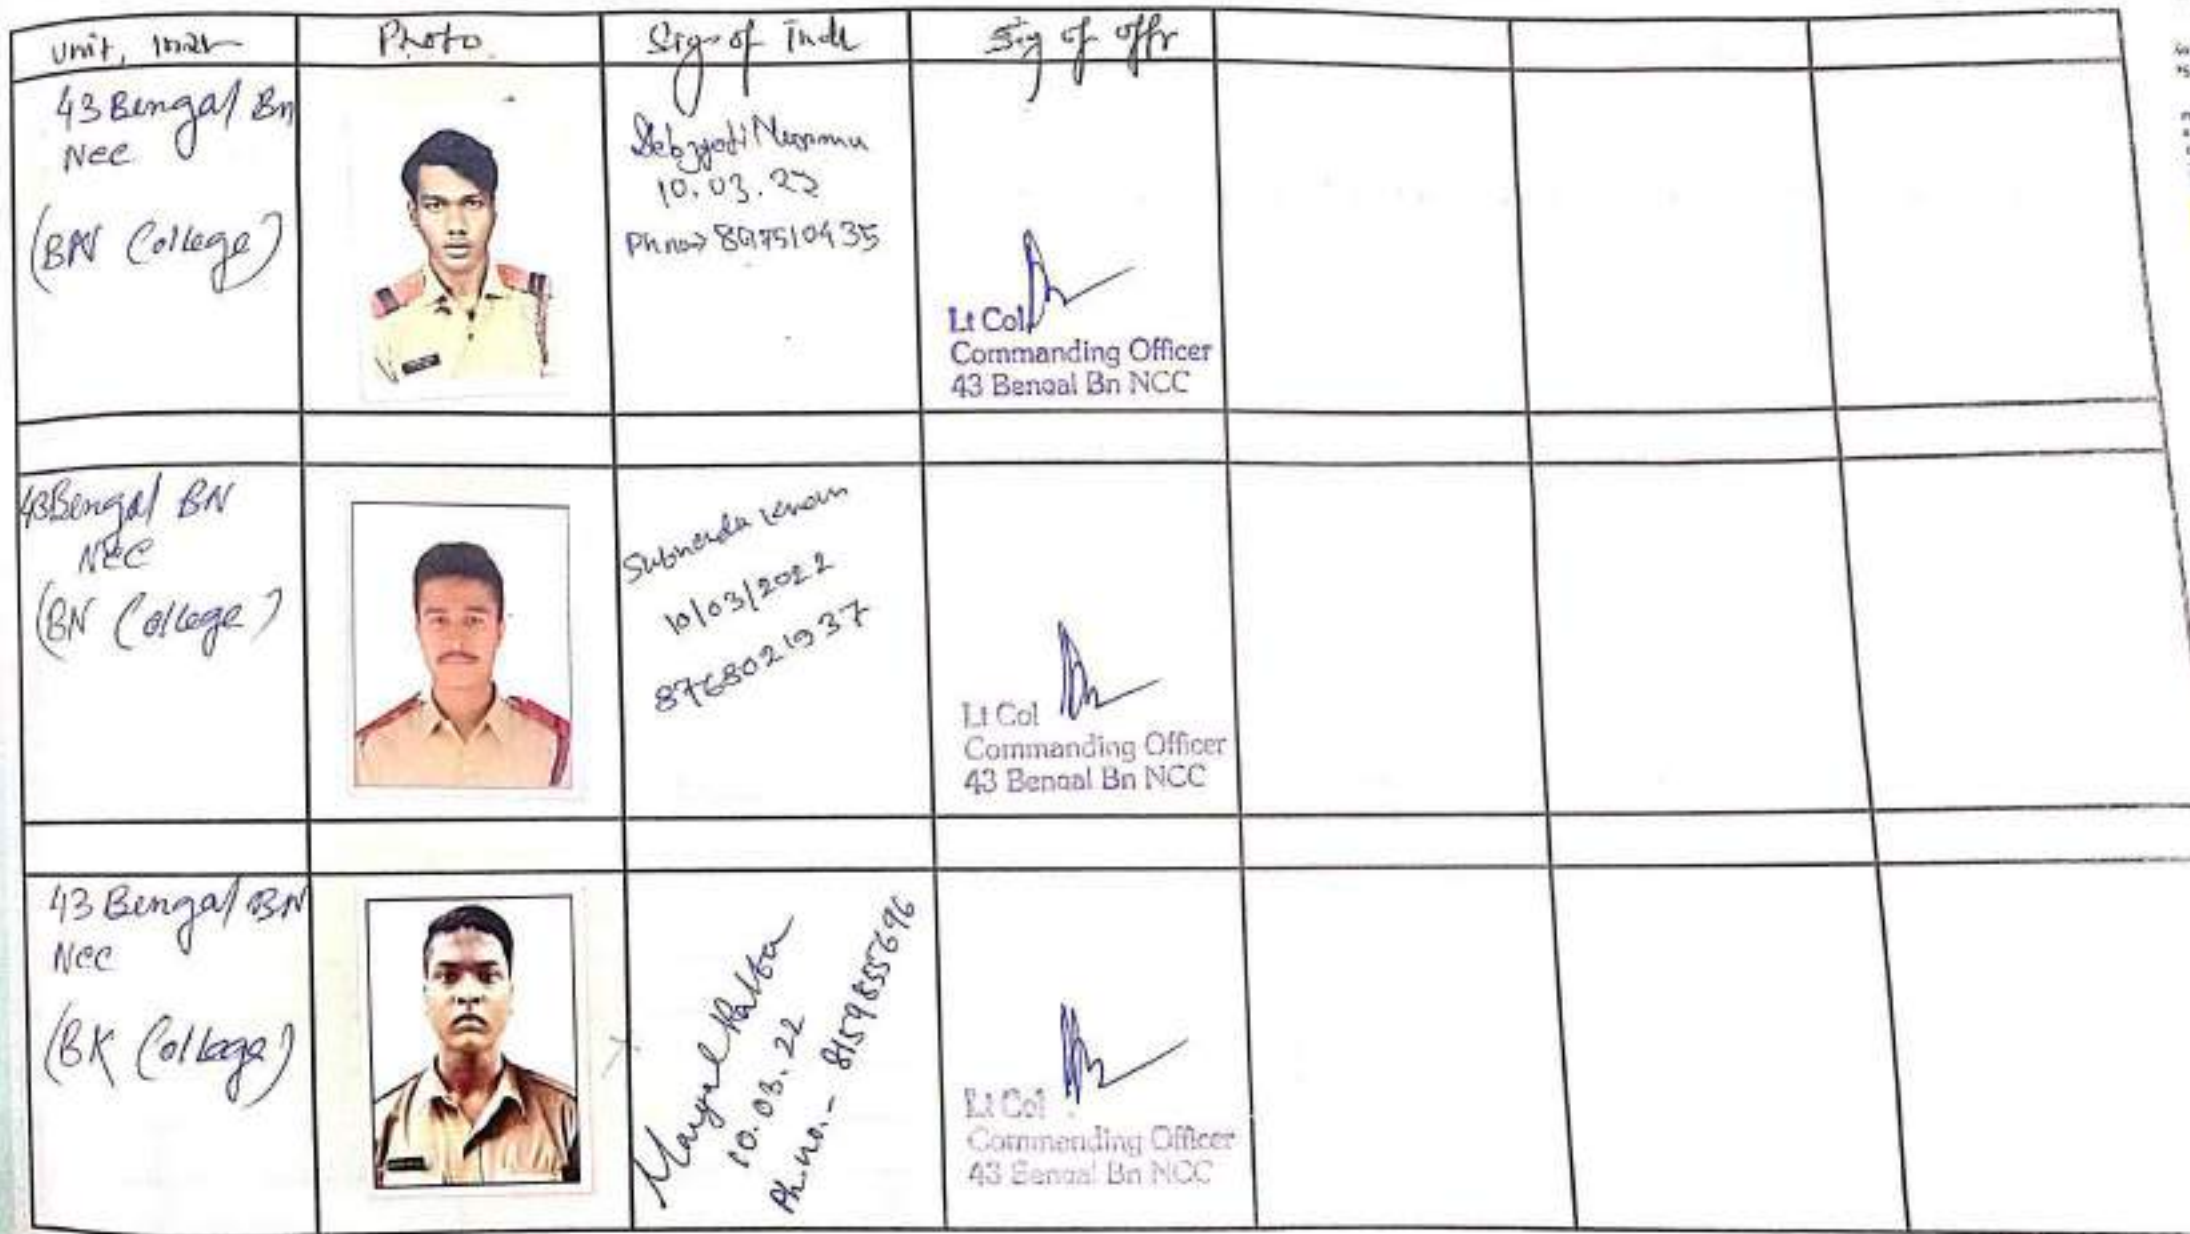 Unit,
Photo
Sig of Indl
Sig of Offr
43 Bengal Bn
NCC
(BN College)
Debjyoti Murmu
10.03.22
Ph no→
Lt Col
Commanding Officer
43 Bengal Bn NCC
43 Bengal BN
NCC
(BN College)
10/03/2022
8768021937
Lt Col
Commanding Officer
43 Bengal Bn NCC
43 Bengal BN
NCC
(BK College)
10.03.22
Ph.no.- 8159855696
Lt Col
Commanding Officer
43 Bengal Bn NCC